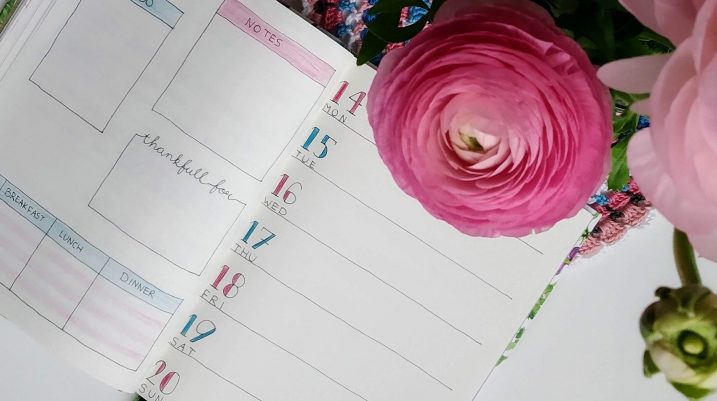 DO
NOTES
thankfull for
BREAKFAST
LUNCH
DINNER
14
MON
15
TUE
16
WED
17
THU
18
FRI
19
SAT
20
SUN